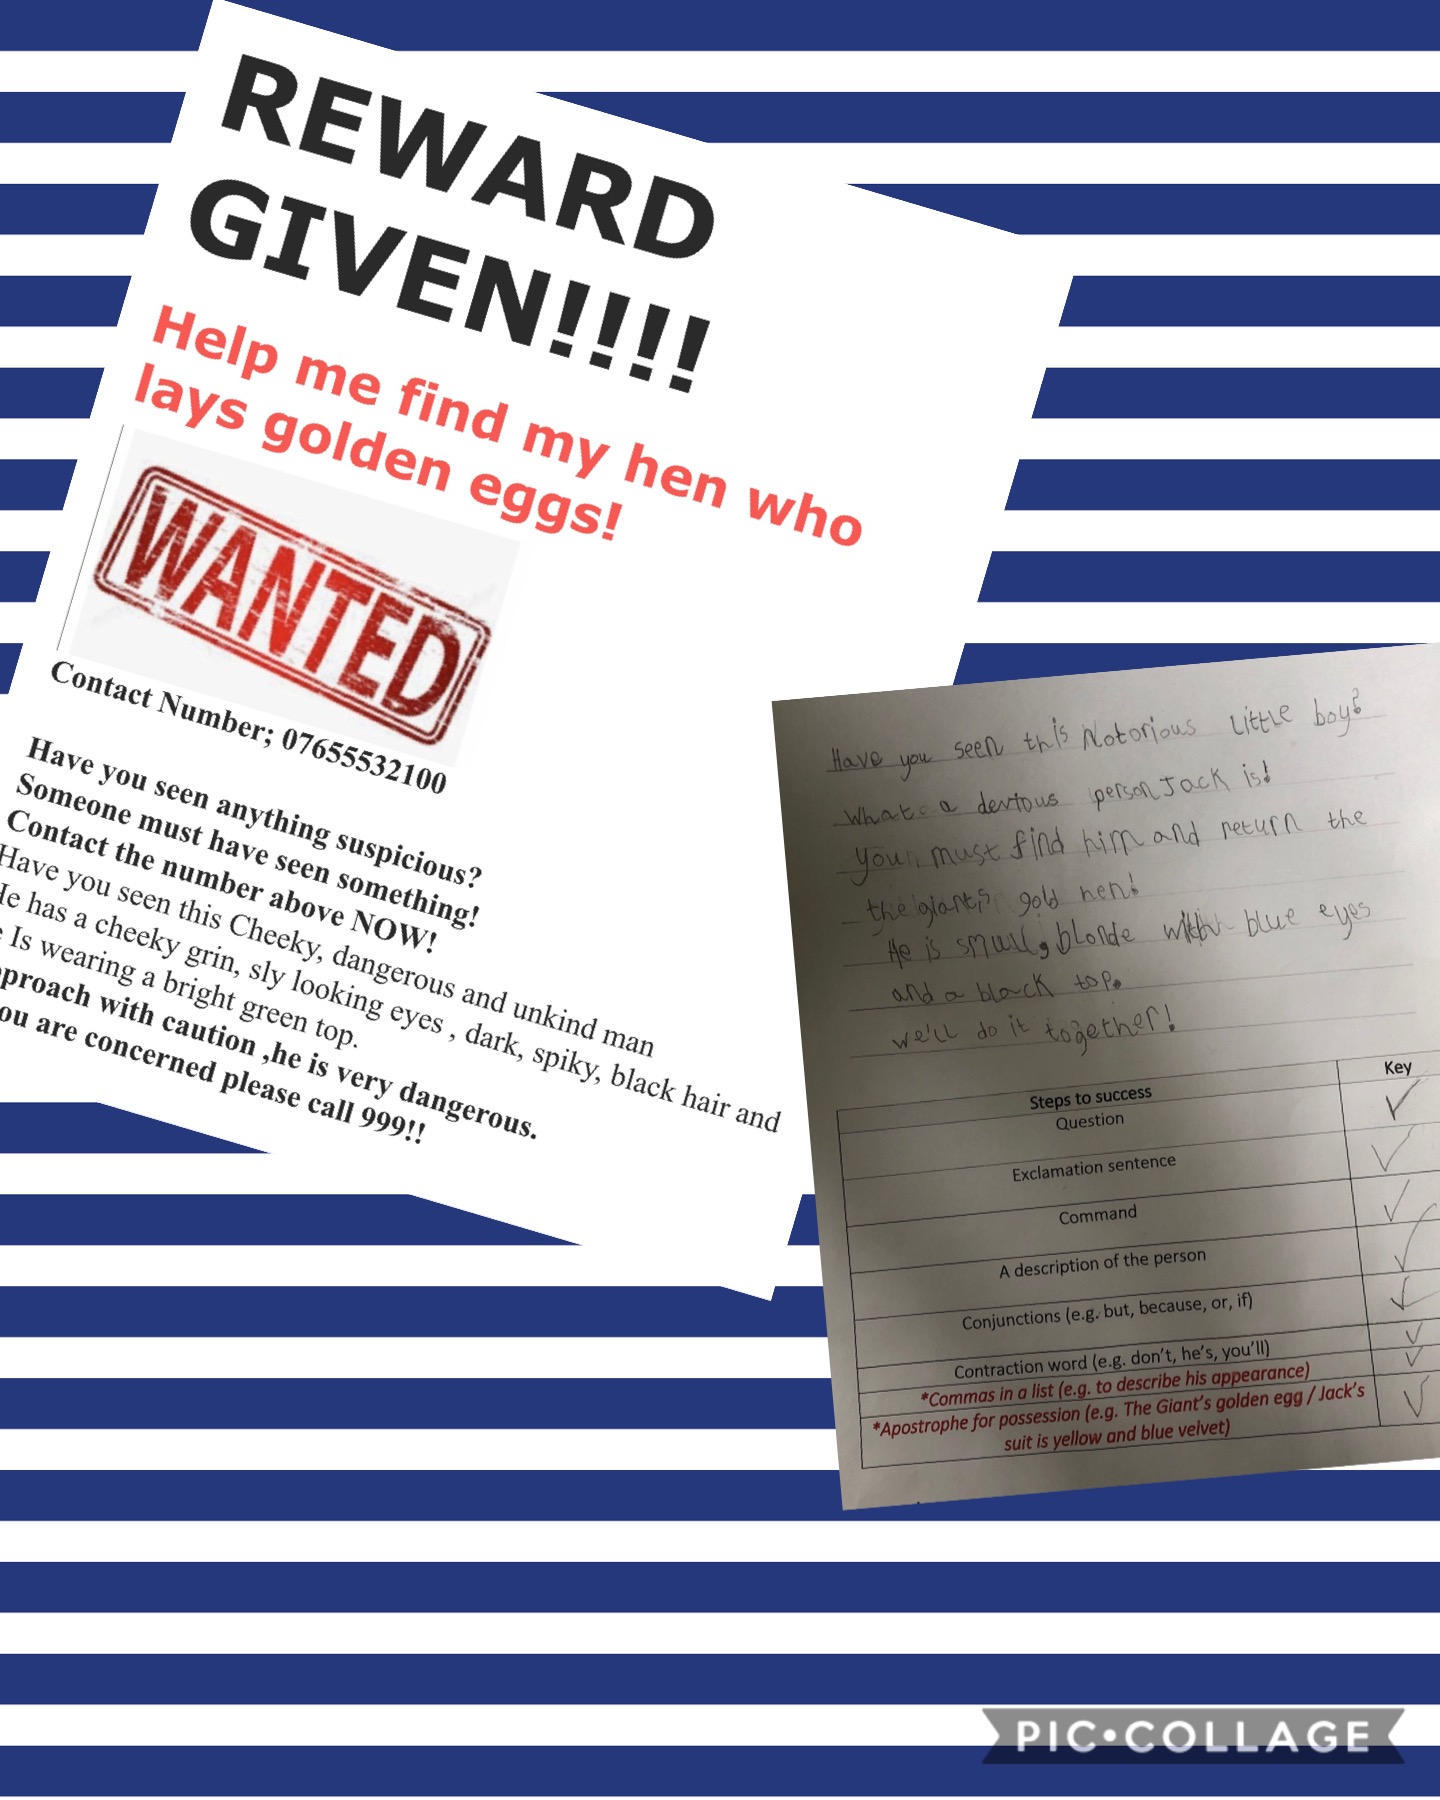 REWARD
GIVEN!!!!
Help me find my hen who
lays golden eggs!
WANTED
Contact Number; 07655532100
Have you seen anything suspicious?
Someone must have seen something!
Contact the number above NOW!
Have you seen this Cheeky, dangerous and unkind man
He has a cheeky grin, sly looking eyes , dark, spiky, black hair and
Is wearing a bright green top.
proach with caution ,he is very dangerous.
ou are concerned please call 999!!
Have you seen this Notorious little boy?
What a devious person Jack is!
You must find him and return the
the giant's gold hen!
He is small, blonde with blue eyes
and a black top.
we'll do it together!
Steps to success Key
Question
Exclamation sentence
Command
A description of the person
Conjunctions (e.g. but, because, or, if)
Contraction word (e.g. don't, he's, you'll)
*Commas in a list (e.g. to describe his appearance)
*Apostrophe for possession (e.g. The Giant's golden egg / Jack's
suit is yellow and blue velvet)
PIC•COLLAGE